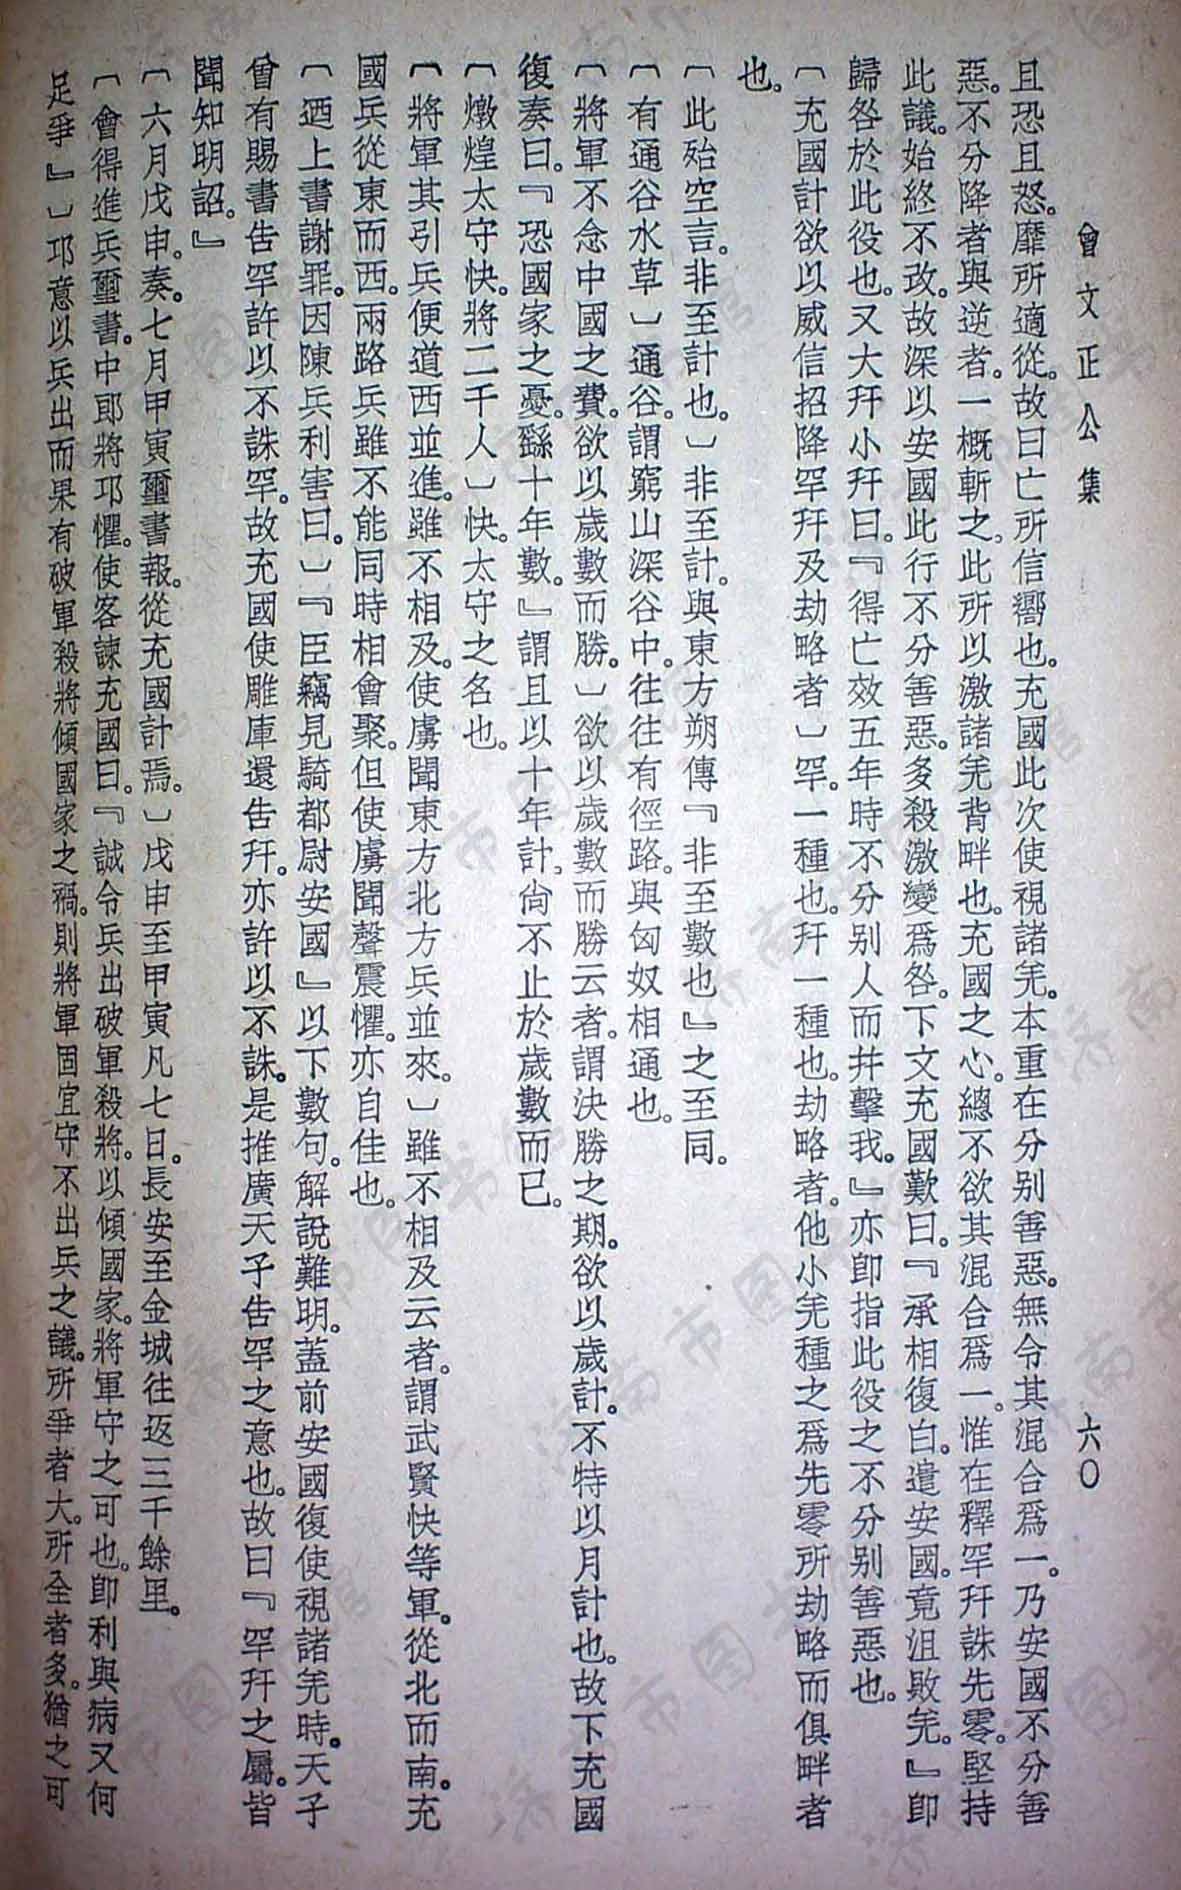 曾文正公集
六〇
且恐且怒。靡所適從。故曰亡所信嚮也。充國此次使視諸羌。本重在分别善惡。無令其混合爲一。乃安國不分善
惡。不分降者與逆者。一概斬之。此所以激諸羌背畔也。充國之心。總不欲其混合爲一。惟在釋罕幵誅先零。堅持
此議。始終不改。故深以安國此行不分善惡。多殺激變爲咎。下文充國歎曰。『丞相復白。遣安國。竟沮敗羌。』卽
歸咎於此役也。又大幵小幵曰。『得亡效五年時不分别人而并擊我。』亦卽指此役之不分別善惡也。
〔充國計欲以威信招降罕幵及劫略者〕罕。一種也。幵一種也。劫略者。他小羌種之爲先零所劫略而俱畔者
也。
〔此殆空言。非至計也。〕非至計。與東方朔傳『非至數也』之至同。
〔有通谷水草〕通谷。謂窮山深谷中。往往有徑路。與匈奴相通也。
〔將軍不念中國之費。欲以歲數而勝。〕欲以歲數而勝云者。謂決勝之期。欲以歲計。不特以月計也。故下充國
復奏曰。『恐國家之憂。繇十年數。』謂且以十年計。尙不止於歲數而已。
〔燉煌太守快。將二千人〕快。太守之名也。
〔將軍其引兵便道西並進。雖不相及。使虜聞東方北方兵並來。〕雖不相及云者。謂武賢快等軍。從北而南。充
國兵從東而西。兩路兵雖不能同時相會聚。但使虜聞聲震懼。亦自佳也。
〔迺上書謝罪。因陳兵利害曰。〕『臣竊見騎都尉安國』以下數句。解說難明。蓋前安國復使視諸羌時。天子
曾有賜書告罕許以不誅罕。故充國使雕庫還告幵。亦許以不誅。是推廣天子告罕之意也。故曰『罕幵之屬。皆
聞知明詔。』
〔六月戊申。奏。七月甲寅璽書報。從充國計焉。〕戊申至甲寅凡七日。長安至金城往返三千餘里。
〔會得進兵璽書。中郎將卭懼。使客諫充國曰。『誠令兵出破軍殺將。以傾國家。將軍守之可也。卽利與病又何
足爭』〕卭意以兵出而果有破軍殺將傾國家之禍。則將軍固宜守不出兵之議。所爭者大。所全者多。猶之可